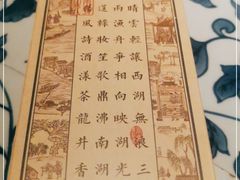 晴雲輕讓西湖無浪三
雨漁舟爭相向映湖光
妝笙歌鼎沸南湖
風詩酒漾茶龍井香